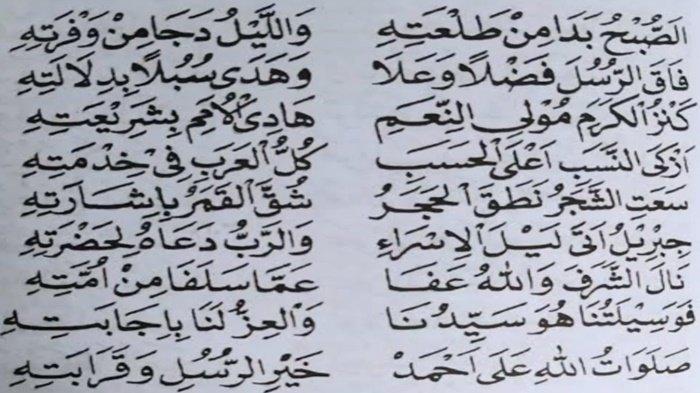 اَلصُّبْحُ بَدَا مِنْ طَلْعَتِهِ وَاللَّيْلُ دَجَا مِنْ وَفْرَتِهِ
فَاقَ الرُّسُلَ فَضْلًا وَعَلَا وَهَدَى سُبُلًا بِدِلَالَتِهِ
كَنْزُ الْكَرَمِ مُوْلِى النِّعَمِ هَادِى الْاُمَمِ بِشَرِيْعَتِهِ
اَزْكَى النَّسَبِ اَعْلَى الْحَسَبِ كُلُّ الْعَرَبِ فِىْ خِدْمَتِهِ
سَعَتِ الشَّجَرُ نَطَقَ الْحَجَرُ شُقَّ الْقَمَرُ بِاِشَارَتِهِ
جِبْرِيْلُ اَتَى لَيْلَ الْاِسْرَاءِ وَالرَّبُّ دَعَاهُ لِحَضْرَتِهِ
نَالَ الشَّرَفَ وَاللهُ عَفَا عَمَّا سَلَفَا مِنْ اُمَّتِهِ
فَوَسِيْلَتُنَا هُوَ سَيِّدُنَا وَالْعِزُّ لَنَا بِاِجَابَتِهِ
صَلَوَاتُ اللهِ عَلَى اَحْمَدْ خَيْرِ الرُّسُلِ وَقَرَابَتِهِ